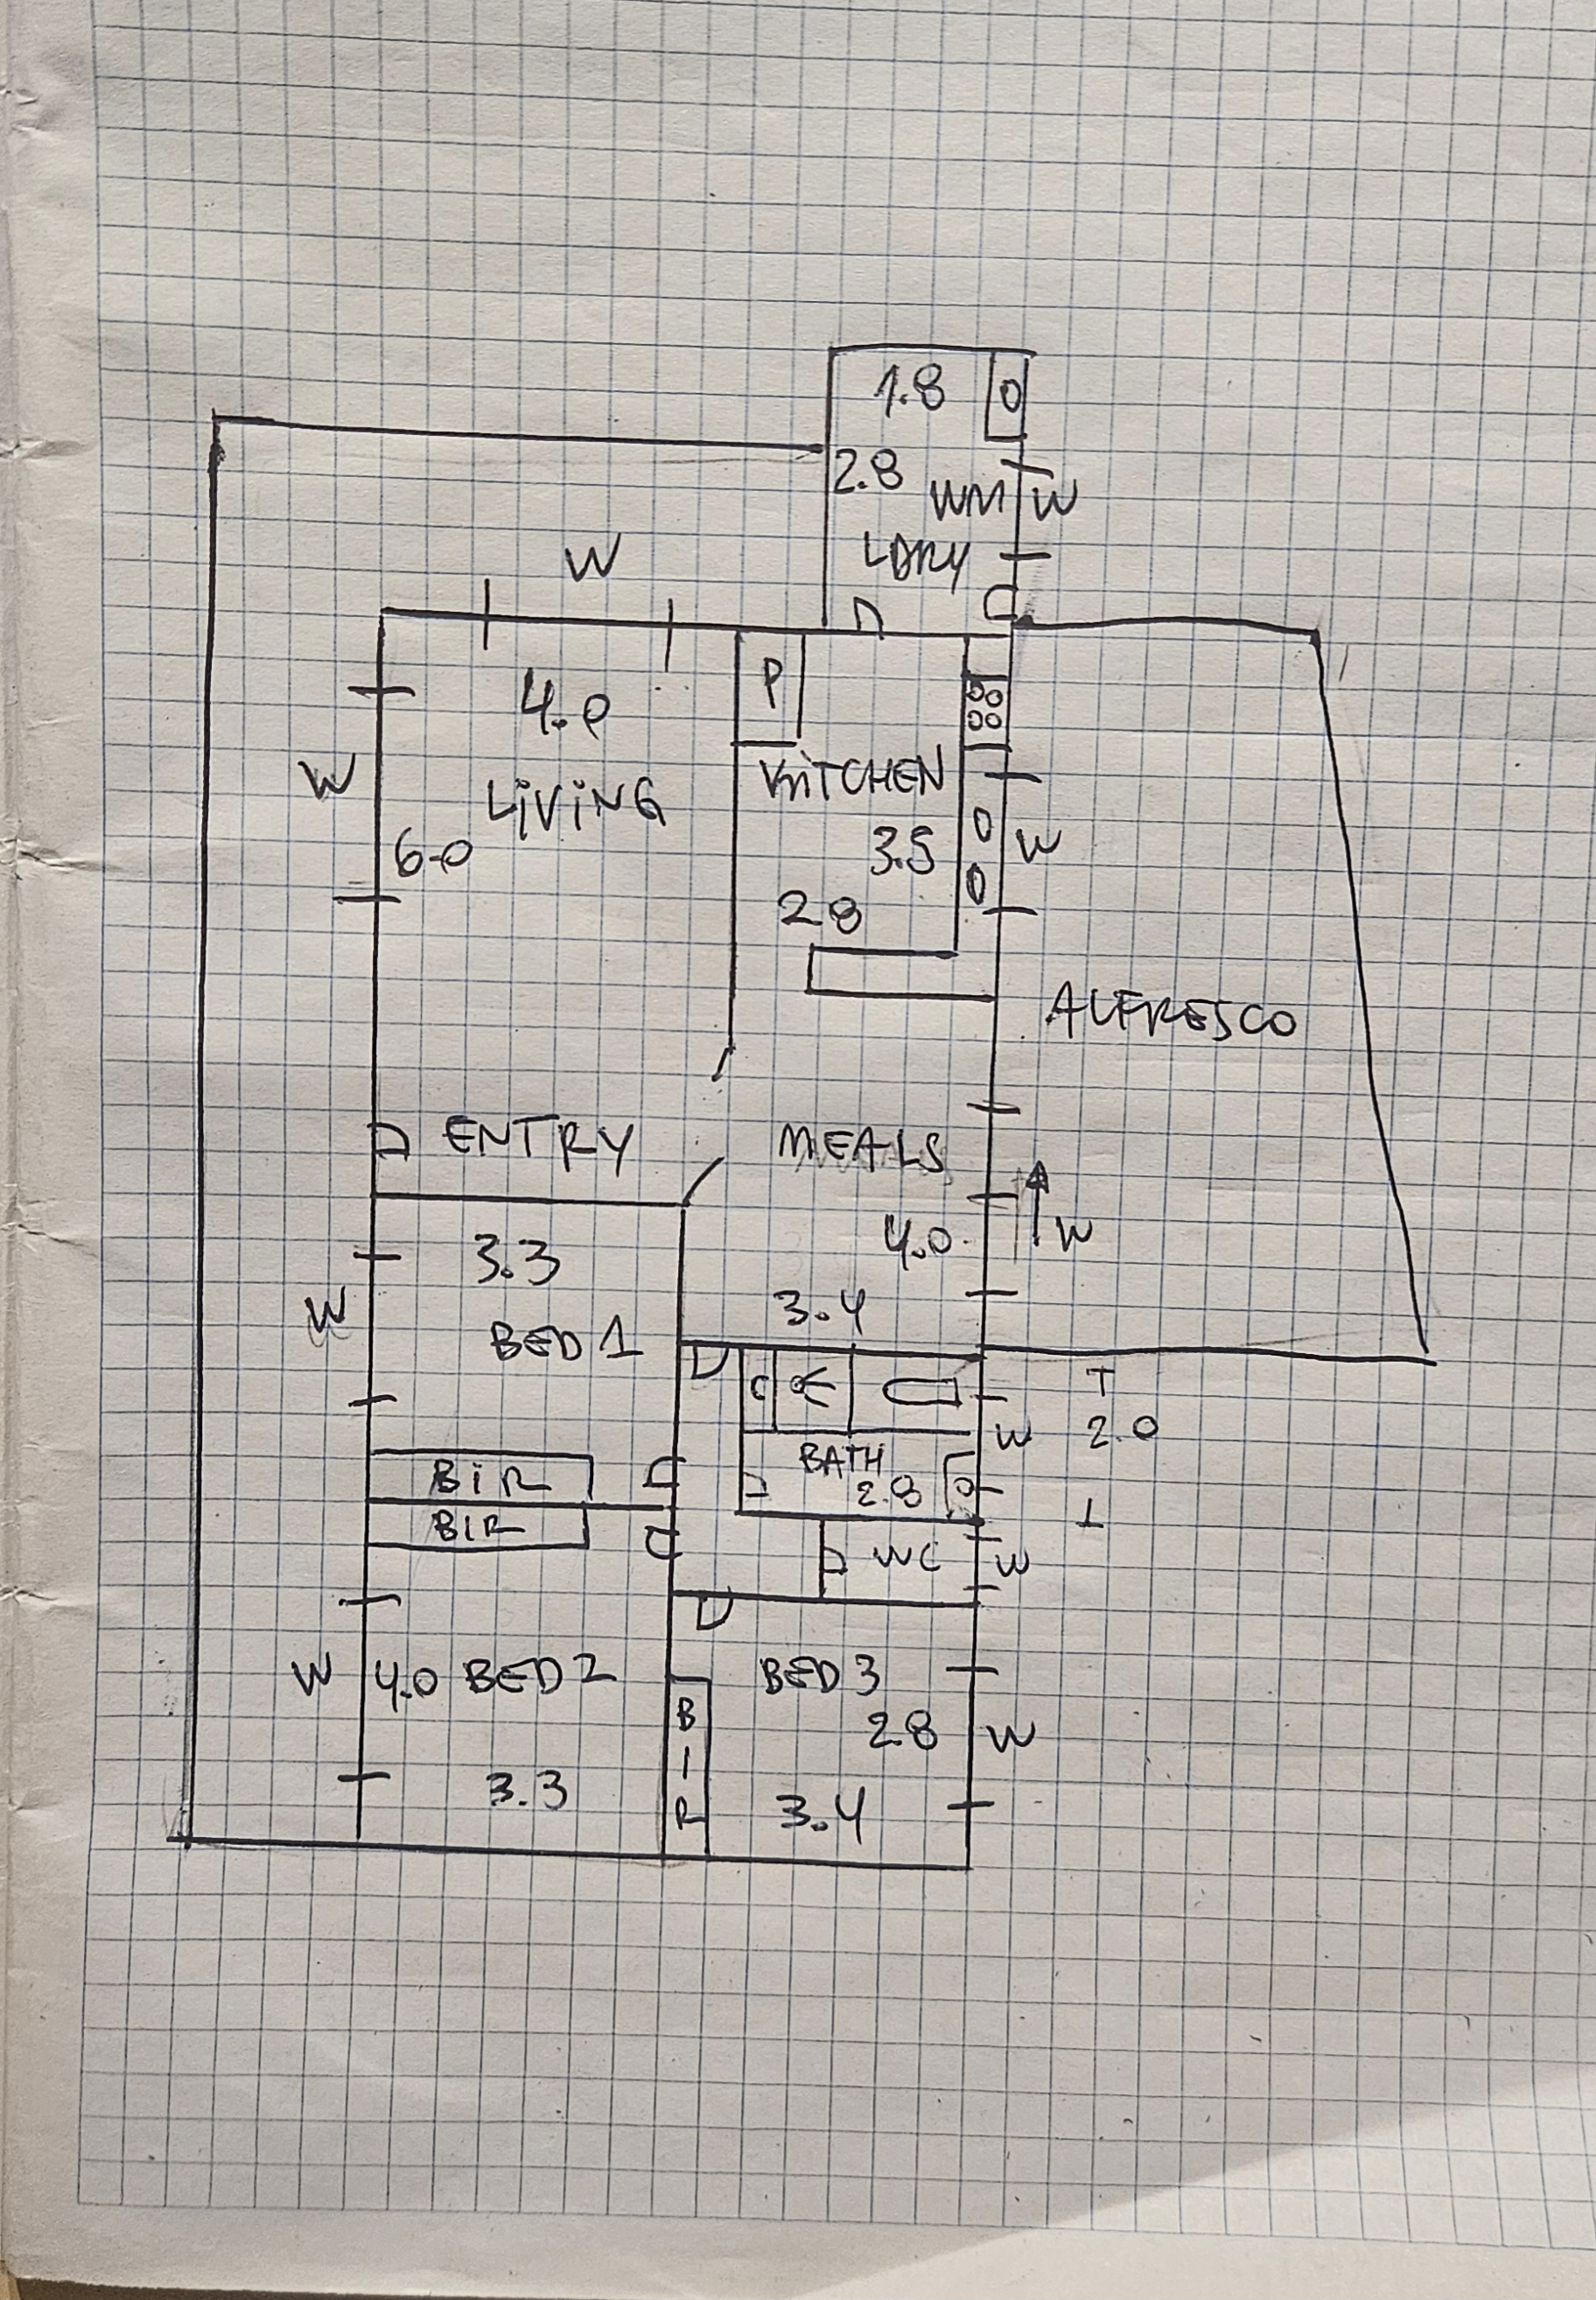 1.8 O
2.8
WM W
W
LDRY
4.0
P
W
LiViNG
KiTCHEN
6.0
3.5
W
2.8
ALFRESCO
ENTRY
MEALS
4.0
W
3.3
3.4
W
BED 1
C
T
W 2.0
BATH
2.8
⊥
BiR
BIR
WC W
W 4.0 BED 2
BED 3
B
I
R
2.8 W
3.3
3.4